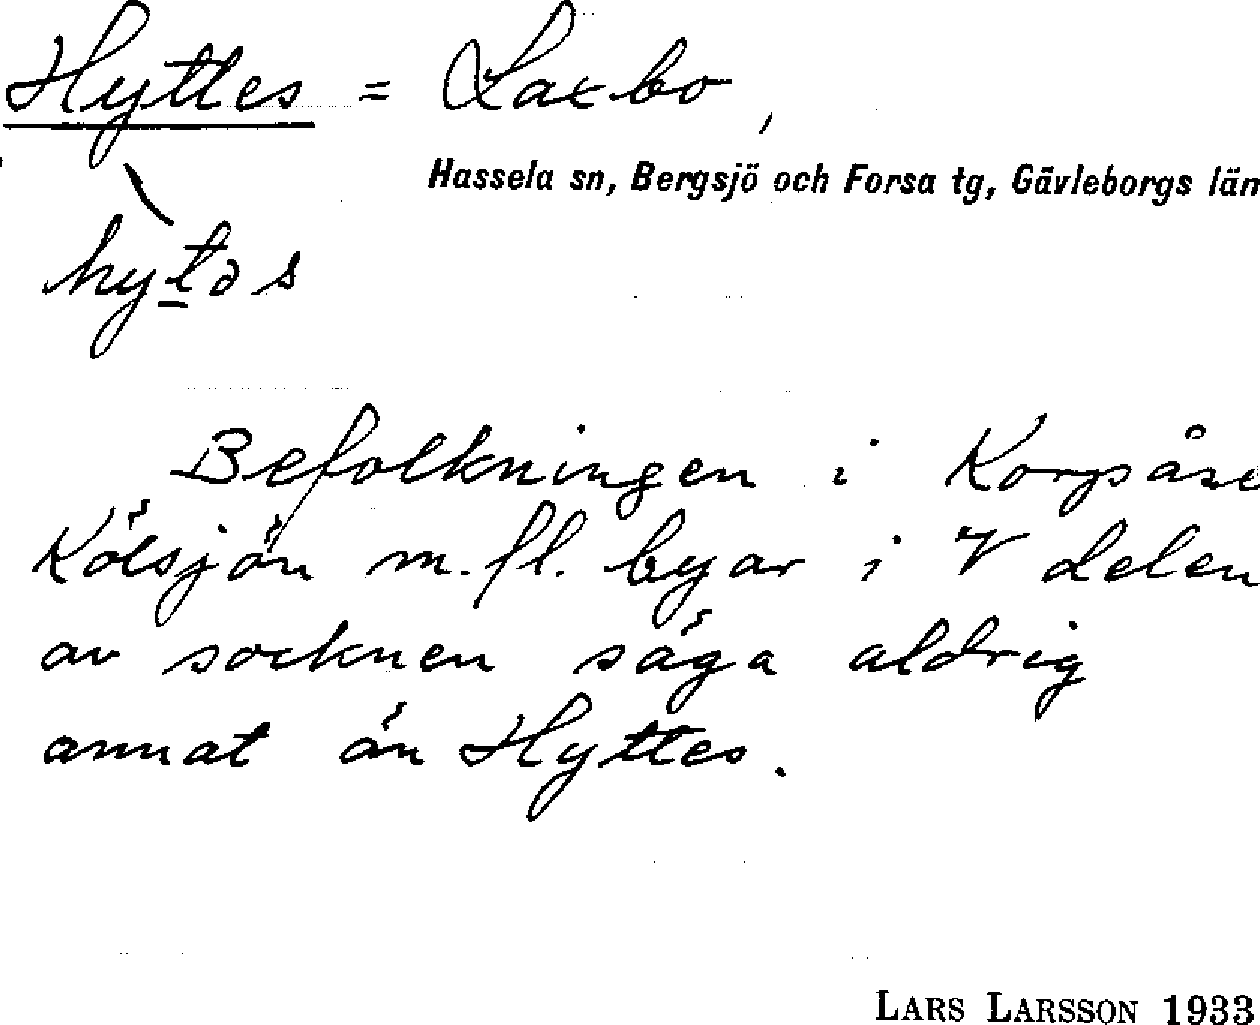 Hyttes = Laxbo,
Hassela sn, Bergsjö och Forsa tg, Gävleborgs län
hytəs
Befolkningen i Korpåse
Kölsjön m.fl. byar i V delen
av socknen säga aldrig
annat än Hyttes.
LARS LARSSON 1933